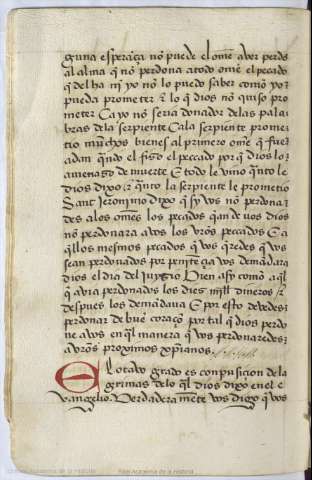 guna esperãça nõ puede el ome aver perdõ
al alma q̃ nõ perdona a todo ome el pecado
q̃ del ha nj yo nõ lo puedo saber como yo
pueda prometer lo q̃ dios nõ quiso pro
meter Ca yo nõ seria donador delas pala
bras dela serpiente Ca la serpiente prome
tio muchos bienes al primero ome q̃ fue
adam q̃ndo el fizo el pecado por q̃ dios lo
amenazo de muerte E todo le vino q̃nto le
dios dixo q̃nto la serpiente le prometio
Sant Jeronimo dixo q̃ sy vos nõ perdona
des alos omes los pecados q̃ an de vos dios
nõ perdonara a vos los vr̃os pecados E a
q̃llos mesmos pecados q̃ vos q̃redes q̃ vos
sean perdonados por penitẽçia vos demãdara
dios el dia del juyzio Bien asy como aql̃
q̃ avia perdonados los diez mjll dineros
despues los demãdava E por esto devedes
perdonar de buẽ coraçõ por tal q̃ dios perdo
ne a vos en ql̃ manera q̃ vos perdonaredes
a vr̃os proximos xp̃ianos
El otavo grado es conpusiçion de la
grimas delo ql̃ dios dixo en el e
vangelio Verdadera mẽte vos digo q̃ vos
Real Academia de la Historia